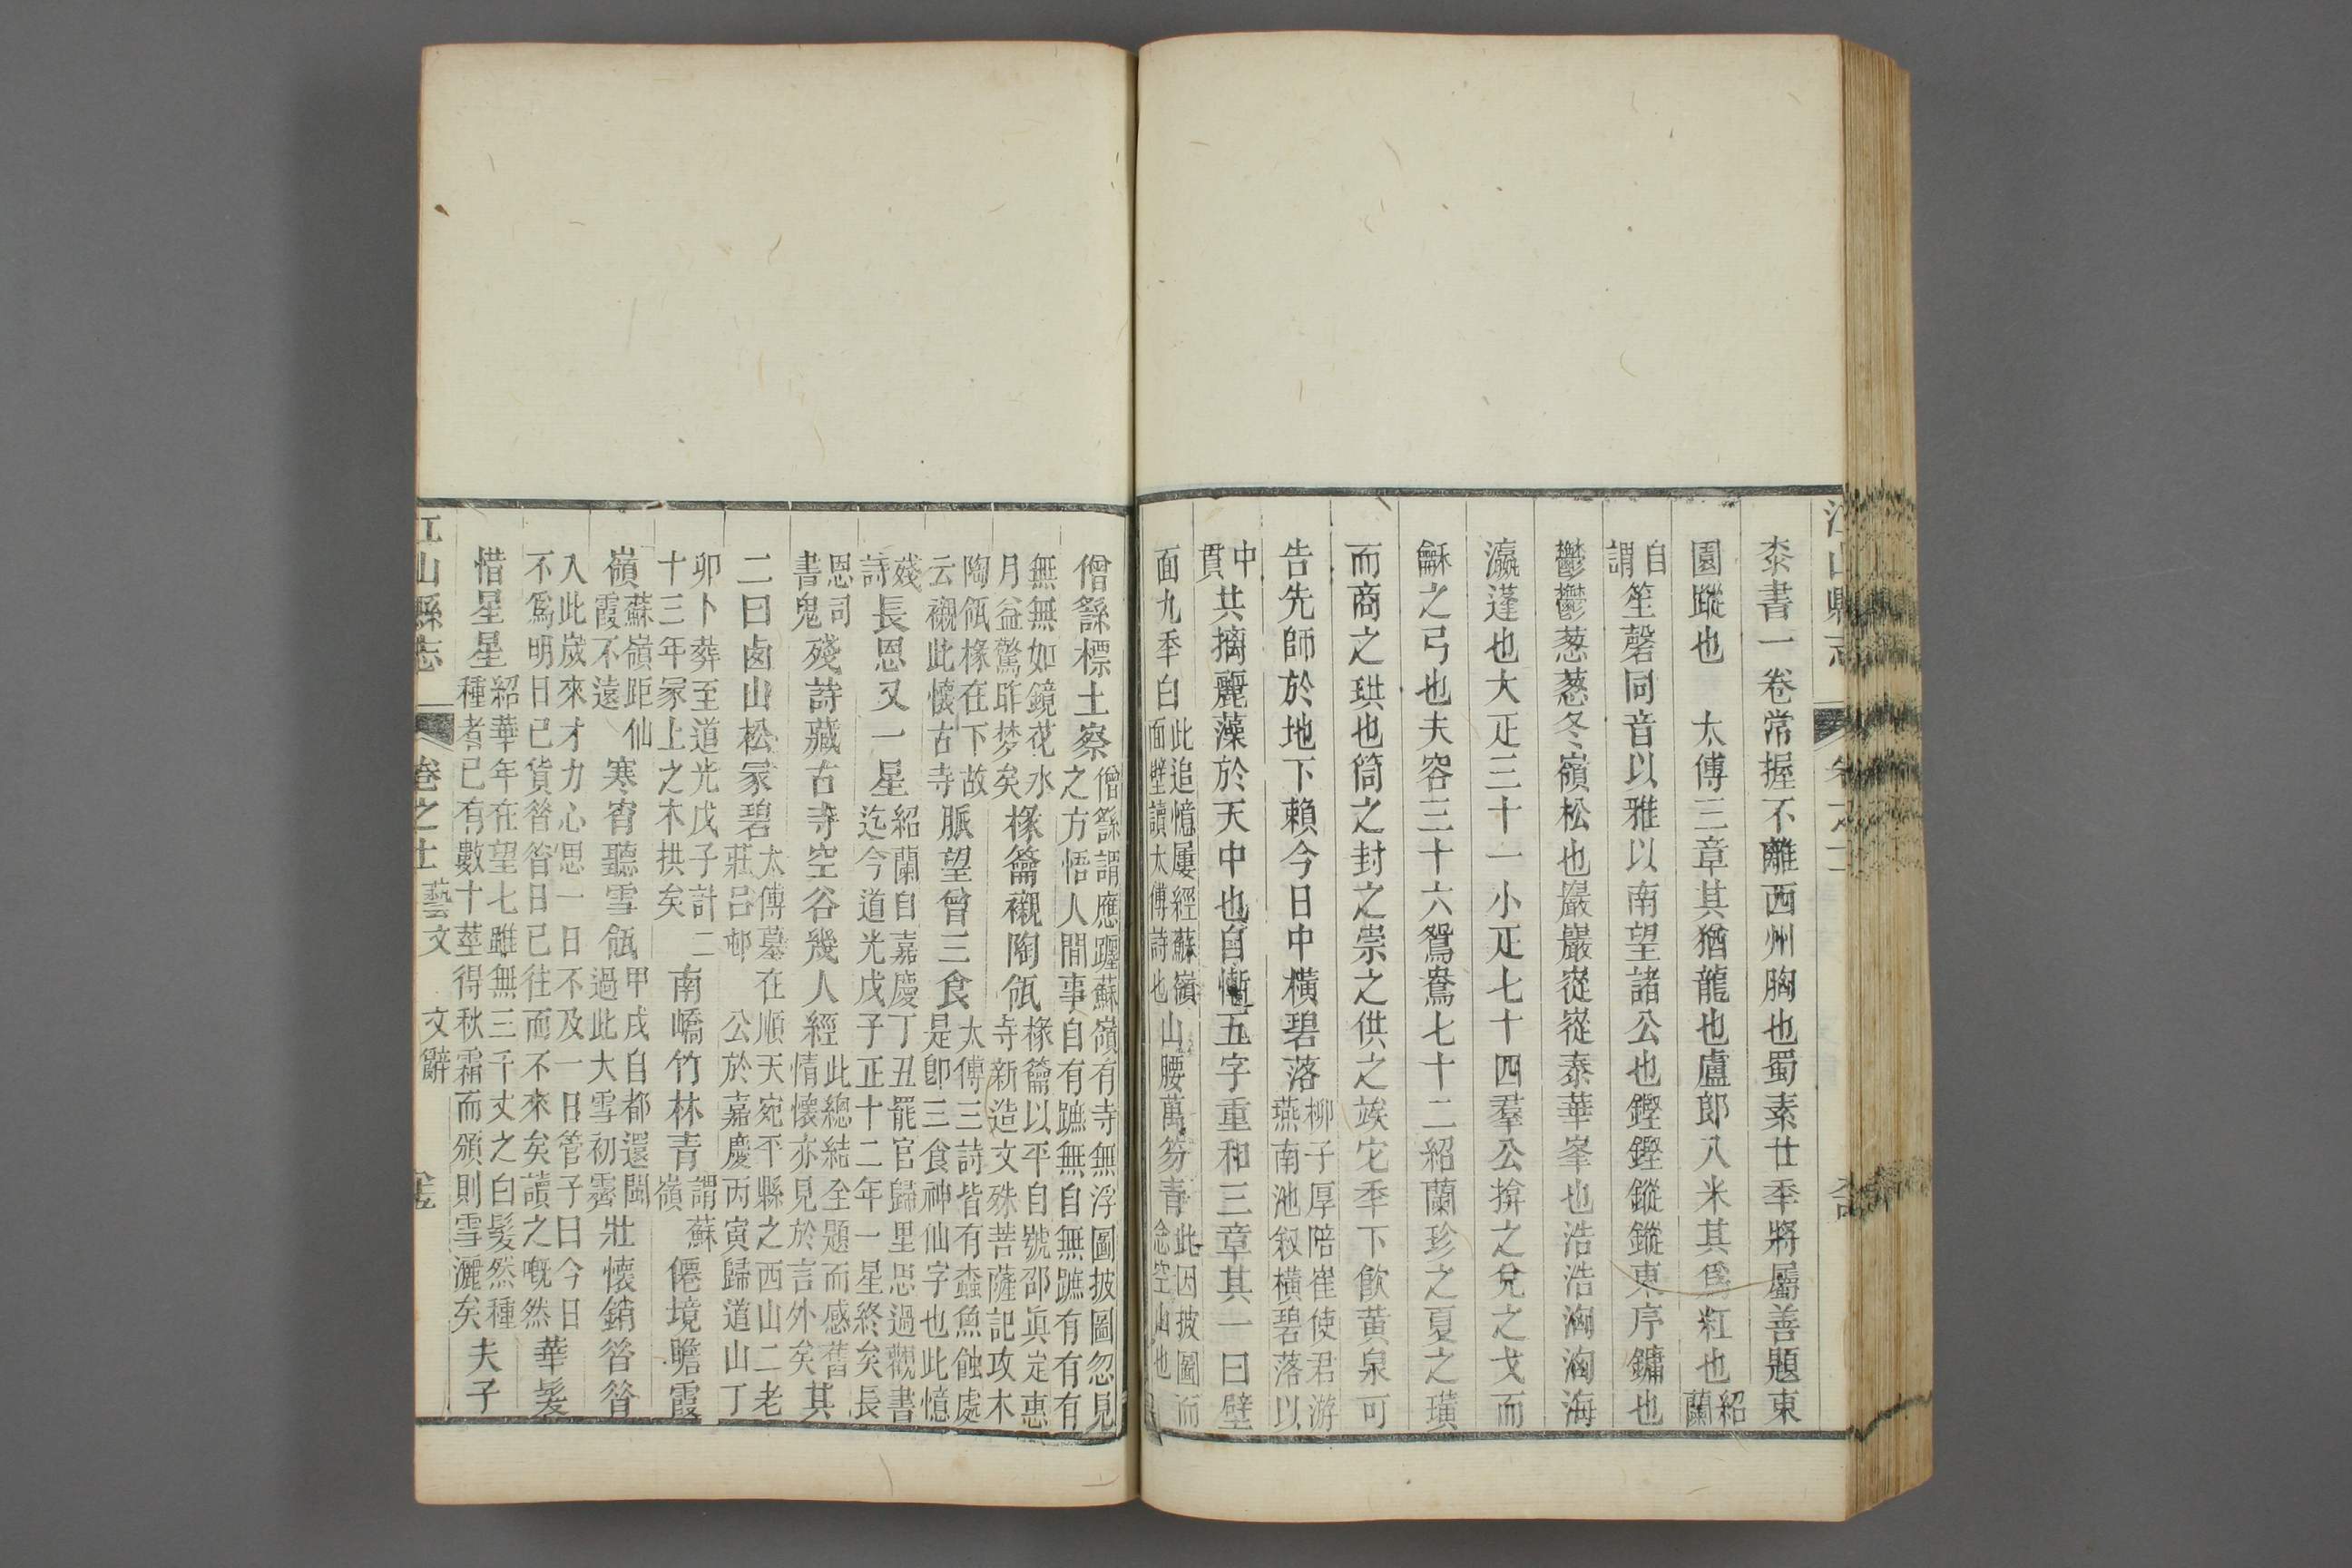 桼書一卷常握不離西州胸也蜀素廿秊將屬善題東
園蹤也　太傅三章其猶龍也盧郎八米其爲䊵也紹蘭
自謂笙磬同音以雅以南望諸公也鏗鏗鏦鏦東序鏞也
鬱鬱葱葱冬嶺松也巖巖嵷嵷泰華峯也浩浩洶洶海
瀛蓬也大疋三十一小疋七十四羣公揜之兌之戈而
龢之弓也夫容三十六鴛鴦七十二紹蘭珍之夏之璜
而商之珙也筒之封之崇之供之竢它秊下飮黃泉可
告先師於地下賴今日中橫碧落柳子厚陪崔使君游燕南池叙橫碧落以
中貫其摛麗藻於天中也自慚五字重和三章其一曰壁
面九秊白此追憶屢經蘇嶺面壁讀太傅詩也山腰萬笏青此因披圖而念空山也
僧繇標土察僧繇謂應躧蘇嶺有寺無浮圖披圖忽見之方悟人間事自有蹠無自無蹠有有有
無無如鏡花水月益驚昨梦矣椽籥襯陶瓻椽籥以平自號邵眞定惠寺新造文殊菩薩記攻木
陶瓻椽在下故云襯此懷古寺脈望曾三食太傅三詩皆有蠧魚蝕處是卽三食神仙字也此憶
殘詩長恩又一星紹蘭自嘉慶丁丑罷官歸里思過觀書迄今道光戊子正十二年一星終矣長
恩司書鬼殘詩藏古寺空谷幾人經此總結全題而感舊情懷亦見於言外矣其
二曰鹵山松冢碧太傅墓在順天宛平縣之西山二老莊呂邨公於嘉慶丙寅歸道山丁
卯卜葬至道光戊子計二十三年冢上之木拱矣南嶠竹林青謂蘇嶺僊境瞻霞
嶺蘇嶺距仙霞不遠寒宵聽雪瓻甲戌自都還閩過此大雪初霽壯懷銷咎咎
入此嵗來才力心思一日不及一日管子曰今日不爲明日已貨咎咎日已往而不來矣讀之嘅然華髮
惜星星紹華年在望七雖無三千丈之白髮然種種者已有數十莖得秋霜而頒則雪灑矣夫子
江山縣志　卷之十一　藝文　文辭